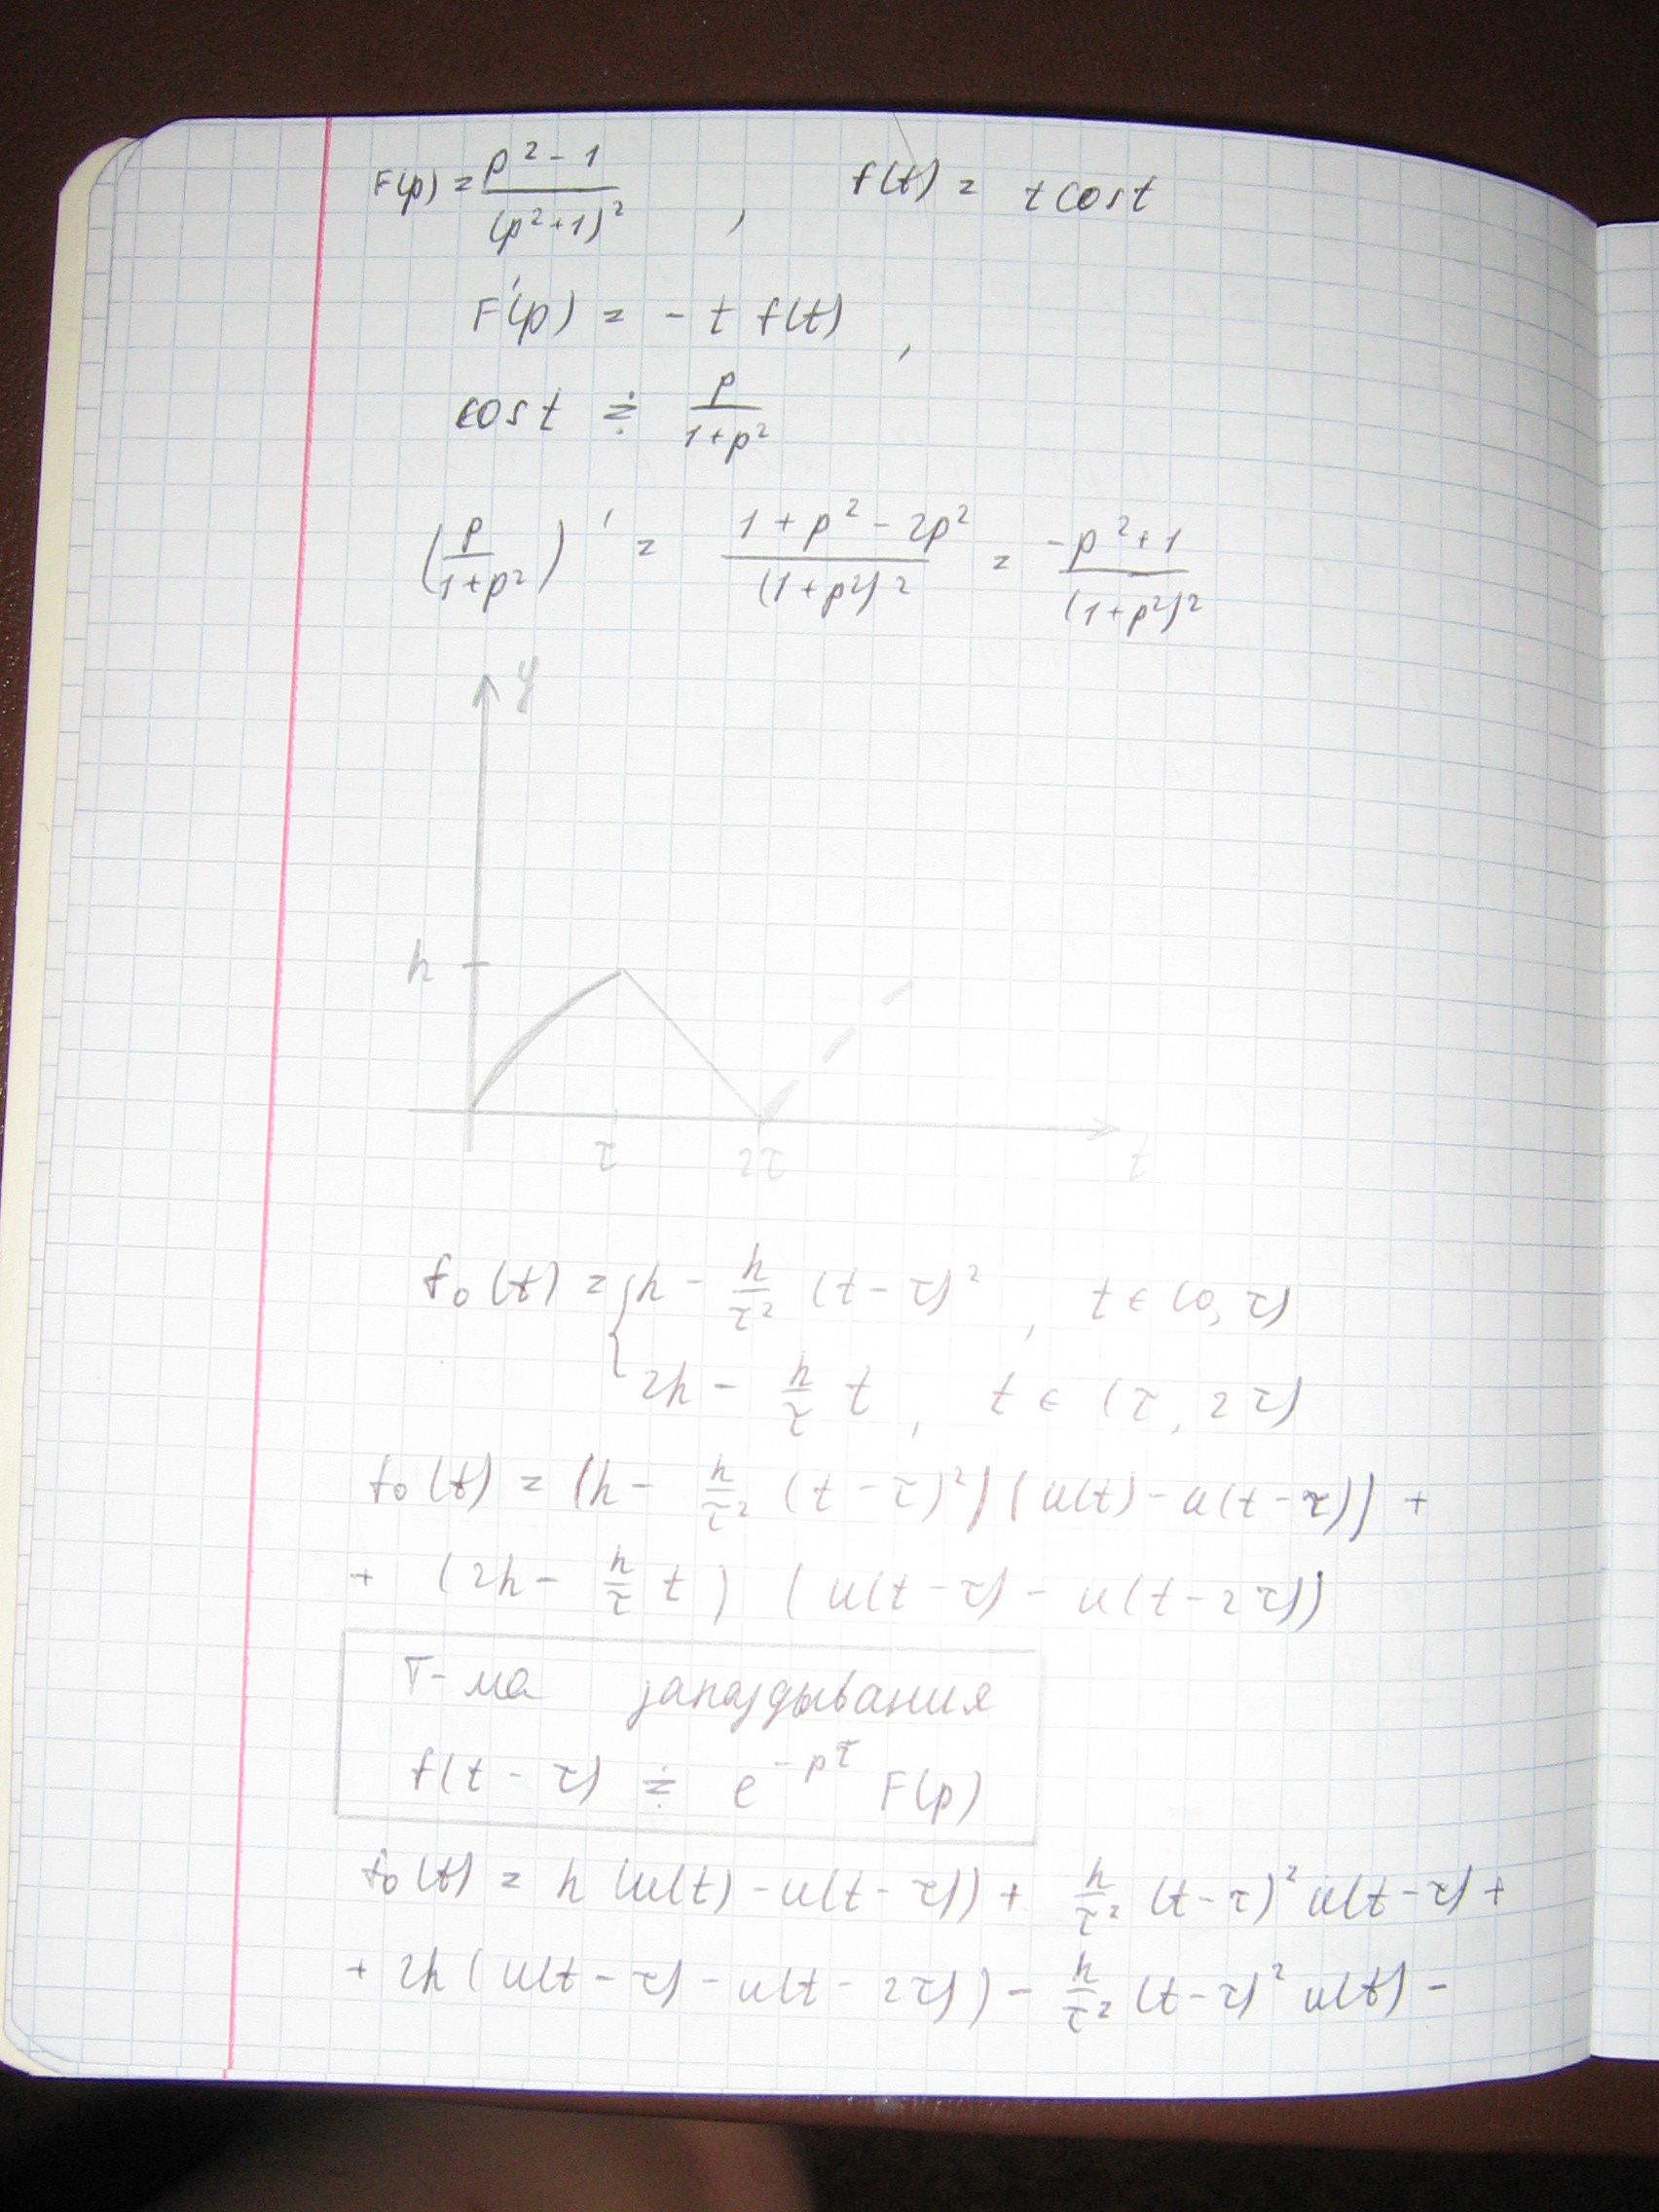 F(p) = (p² - 1)/(p² + 1)² , f(t) = t cos t
F'(p) = - t f(t) ,
cos t ≑ p/(1 + p²)
(p/(1 + p²))' = (1 + p² - 2p²)/(1 + p²)² = (-p² + 1)/(1 + p²)²
y
h
τ 2τ t
f₀(t) = { h - h/τ² (t - τ)² , t ∈ (0, τ)
2h - h/τ t , t ∈ (τ, 2τ)
f₀(t) = (h - h/τ² (t - τ)²) (u(t) - u(t - τ)) +
+ (2h - h/τ t) (u(t - τ) - u(t - 2τ))
Т-ма запаздывания
f(t - τ) ≑ e^(-pτ) F(p)
f₀(t) = h (u(t) - u(t - τ)) + h/τ² (t - τ)² u(t - τ) +
+ 2h (u(t - τ) - u(t - 2τ)) - h/τ² (t - τ)² u(t) -